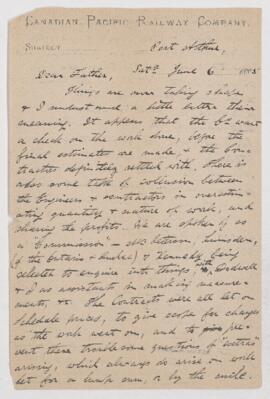 CANADIAN PACIFIC RAILWAY COMPANY.
SUBJECT Port Arthur,
Dear Father, Sat. June 6 1885
Things are now taking shape
& I understand a little better their
meaning. It appears that the Co. want
a check on the work done, before the
final estimates are made & the Con-
tractors definitely settled with. There is
also some talk of collusion between
the Engineers & contractors in overestim-
ating quantity & nature of work, and
sharing the profits. We are spoken of as
a "Commission" - Mr. Peterson, Lumsden,
(of the Ontario & Quebec) & Kennedy being
selected to enquire into things, with
& I as assistants in making measure-
ments, &c. The contracts were all let on
schedule prices, to give scope for changes
as the work went on, and to pre-
vent these troublesome questions of "extras"
arising, which always do arise on work
let for a lump sum, or by the mile.